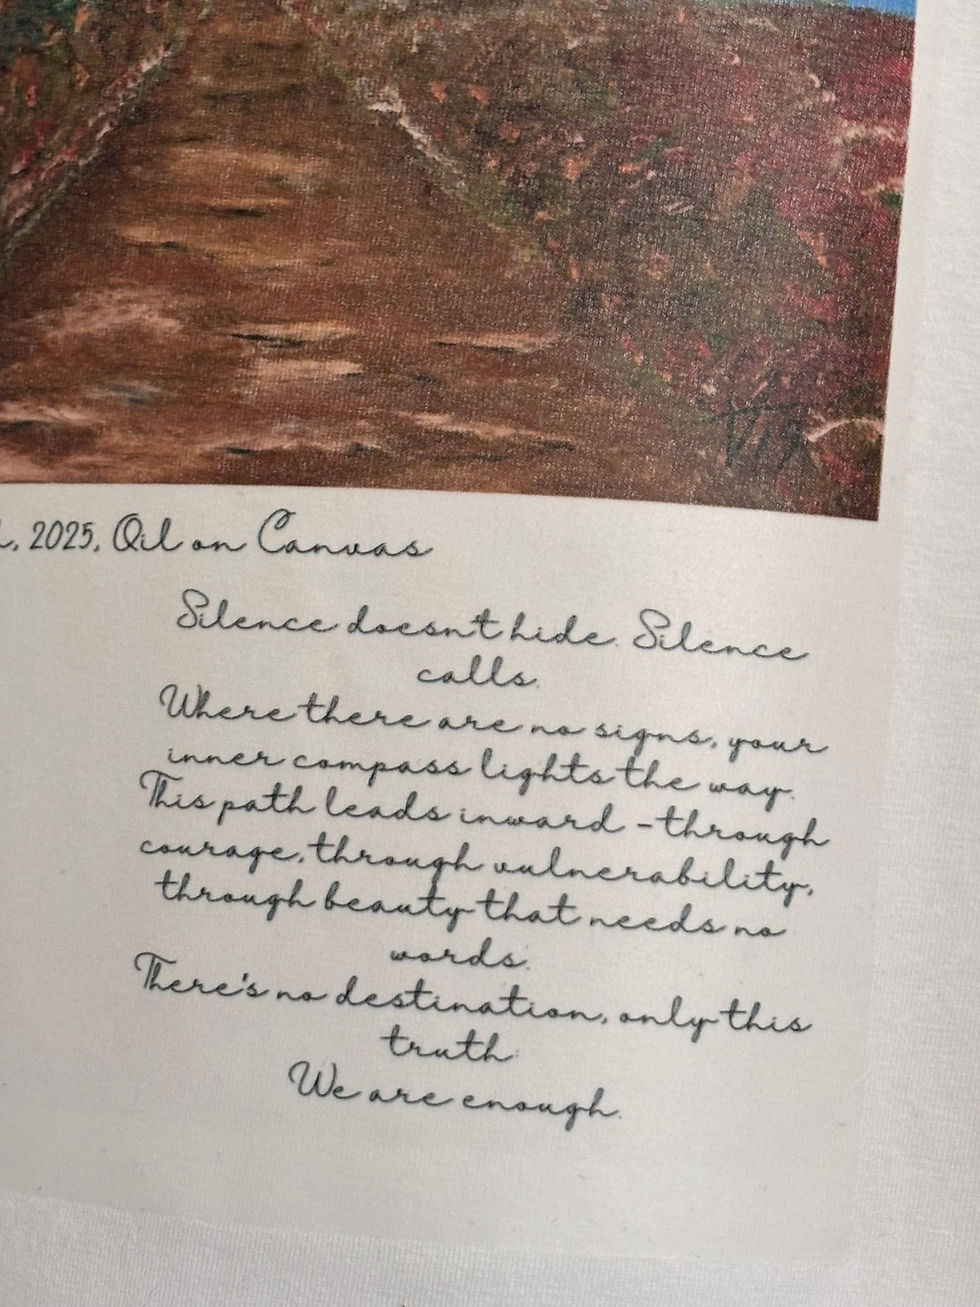 2025, Oil on Canvas
Silence doesn't hide. Silence
calls.
Where there are no signs, your
inner compass lights the way.
This path leads inward - through
courage, through vulnerability,
through beauty that needs no
words.
There's no destination, only this
truth:
We are enough.